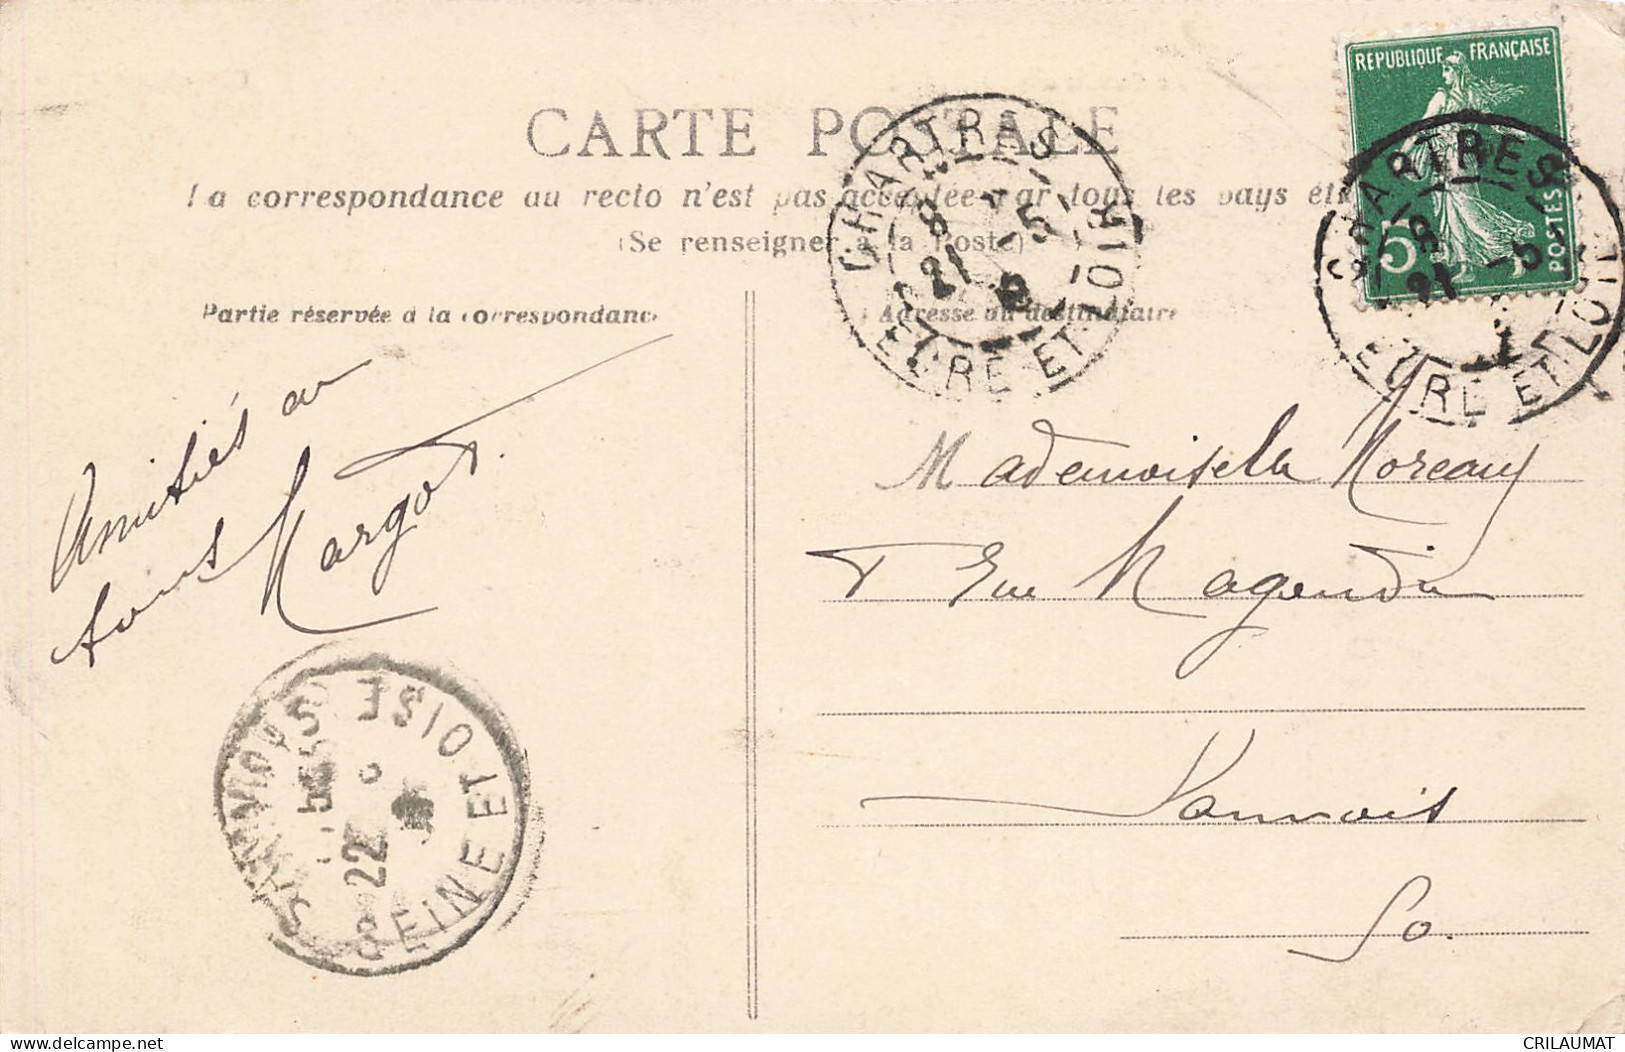 REPUBLIQUE FRANÇAISE
5c
POSTES
CARTE POSTALE
La correspondance au recto n'est pas acceptée par tous les pays
(Se renseigner à la Poste)
CHARTRES
8
21 -5
EURE ET LOIR
CHARTRES
8
21 -5
EURE ET LOIR
Partie réservée à la correspondance
Adresse du destinataire
Amitiés au
Margot.
Mademoiselle Moreau
Rue Magendie
Sannois
So.
SANNOIS
22
SEINE ET OISE
delcampe.net
CRILAUMAT